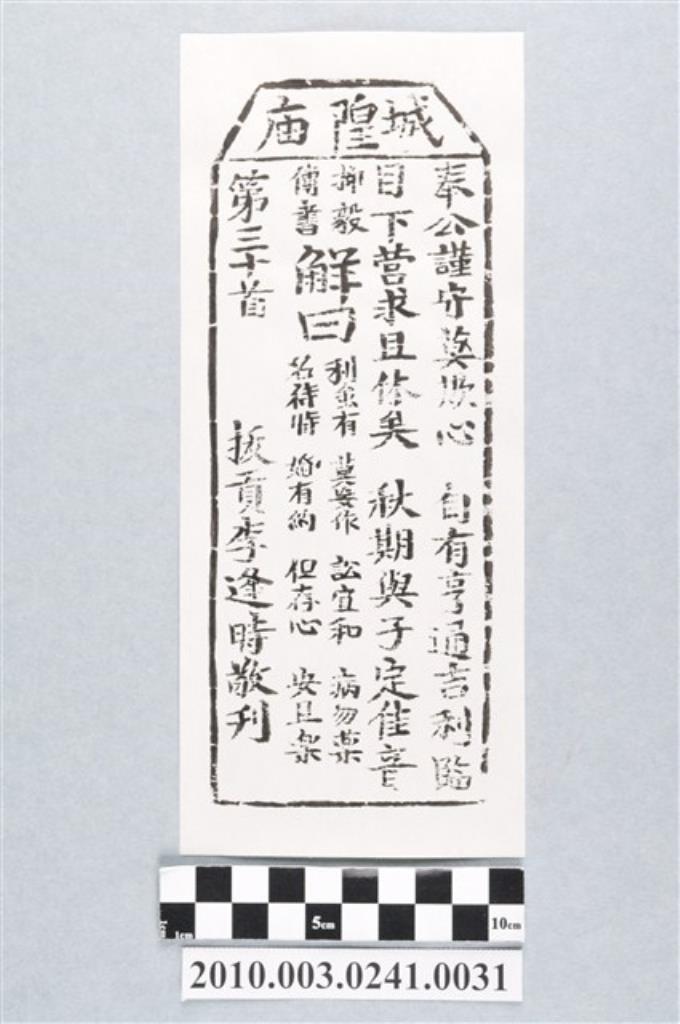 城隍庙
奉公謹守莫欺心 自有亨通吉利臨
目下營求且休矣 秋期與子定佳音
柳毅
傳書
解曰
利有 莫妄作 訟宜和 病勿藥
名待時 婚有約 但存心 安且樂
第三十首 拔貢李逢時敬刊
5cm
10cm
1cm
2010.003.0241.0031